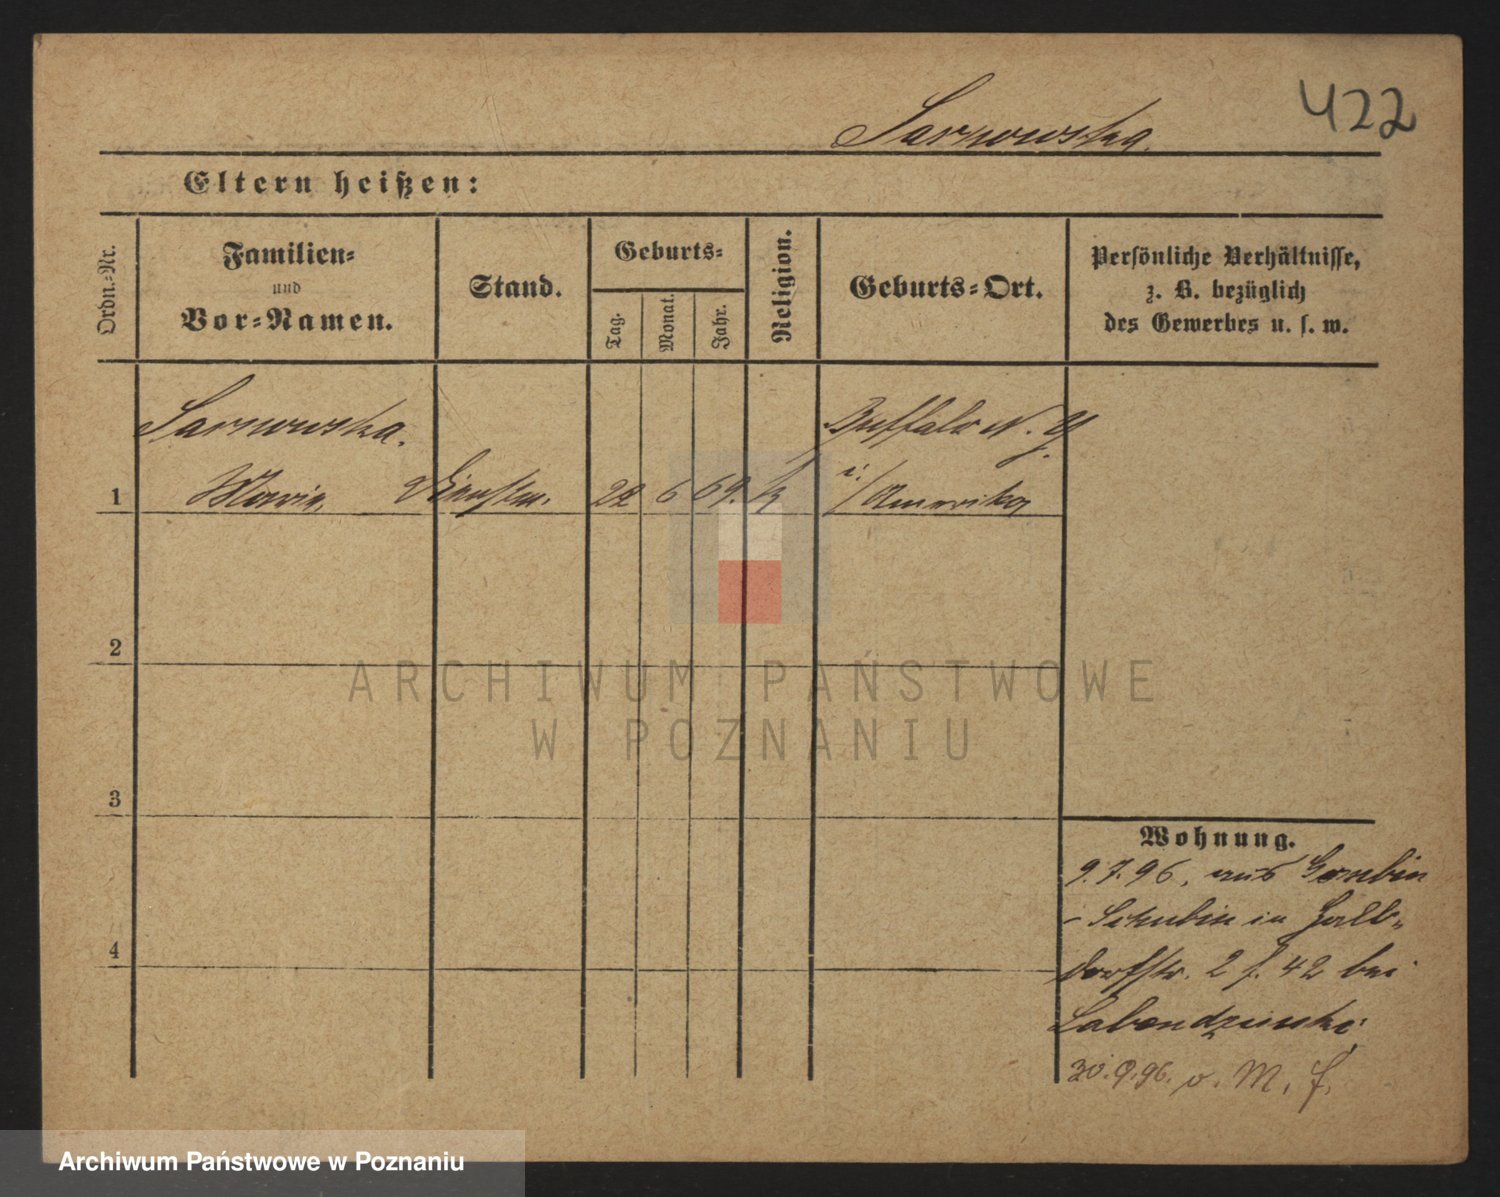 422
Sarnowska.
Eltern heißen:
Ordn.-Nr.
Familien-
und
Vor-Namen.
Stand.
Geburts-
Tag.
Monat.
Jahr.
Religion.
Geburts-Ort.
Persönliche Verhältnisse,
z. B. bezüglich
des Gewerbes u. s. w.
Sarnowska.
Buffalo N. Y.
1 Maria, 6 69. k i./Amerika
2
3
4
Wohnung.
9.7.96, aus
- Schubin in Halb-
dorfstr. 2 f. 42 bei
30.9.96. v. M. f.
ARCHIWUM PAŃSTWOWE
W POZNANIU
Archiwum Państwowe w Poznaniu